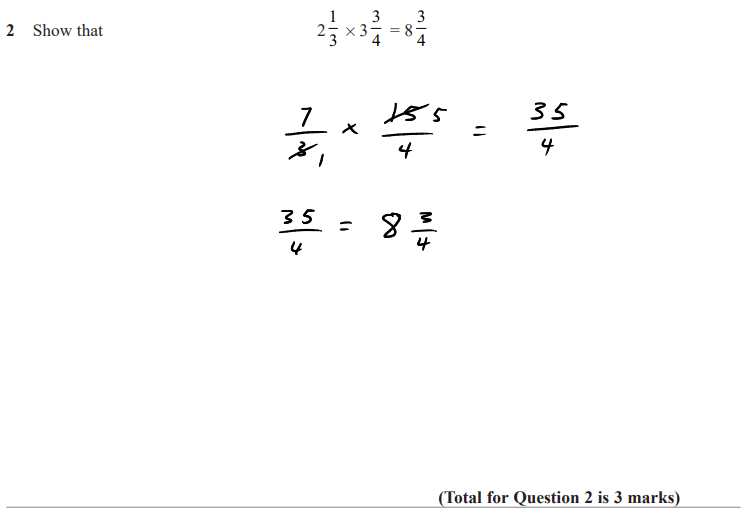 2 Show that 2 1/3 × 3 3/4 = 8 3/4
7/3̶ 1 × 1̶5̶ 5/4 = 35/4
35/4 = 8 3/4
(Total for Question 2 is 3 marks)